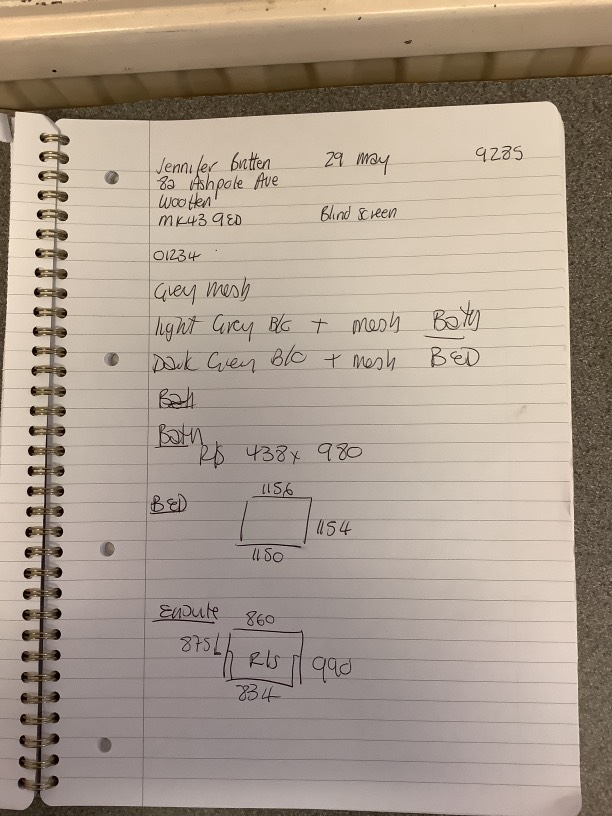 Jennifer Britten 29 May 9285
82 Ashpole Ave
Wootten
MK43 9ED Blind screen
01234
Grey mesh
light Grey B/c + mesh Bath
Dark Grey B/c + mesh BED
Bath
438 x 980
BED
1156
1154
1150
Ensuite
860
875L
R/s
990
834